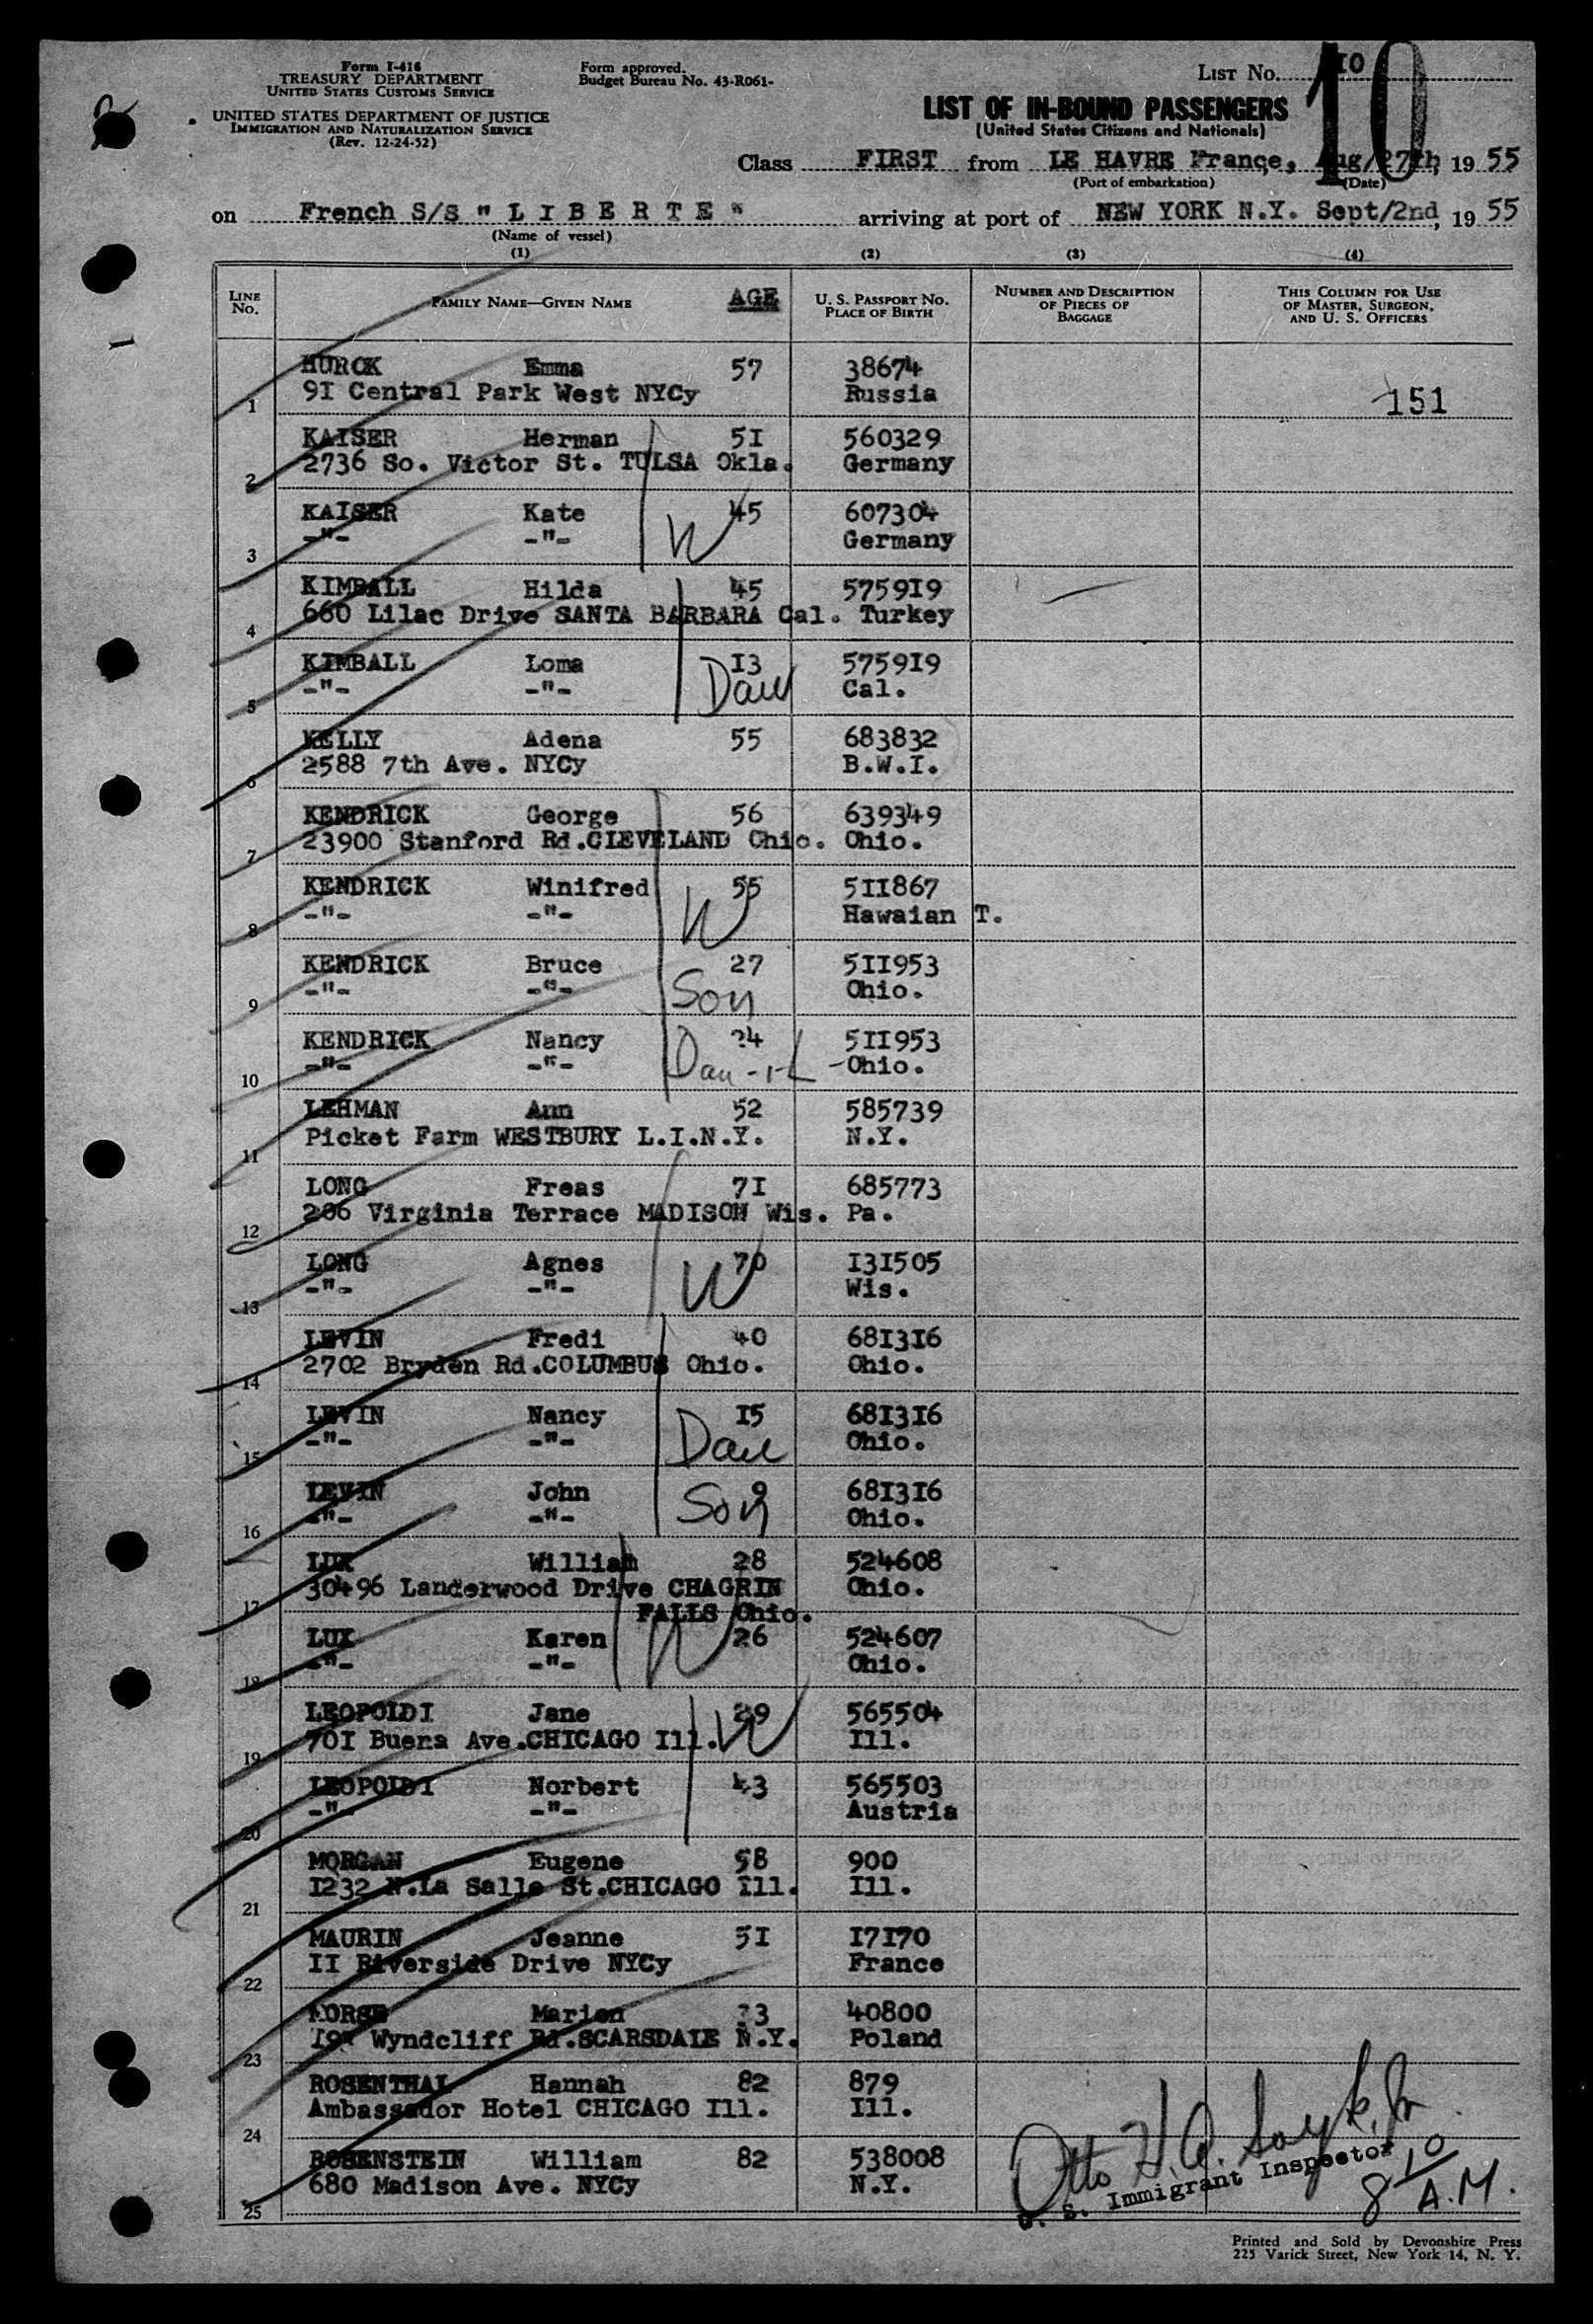 Form I-416
TREASURY DEPARTMENT
UNITED STATES CUSTOMS SERVICE
UNITED STATES DEPARTMENT OF JUSTICE
IMMIGRATION AND NATURALIZATION SERVICE
(Rev. 12-24-52)
Form approved.
Budget Bureau No. 43-R061-
LIST No. 10
10
LIST OF IN-BOUND PASSENGERS
(United States Citizens and Nationals)
Class FIRST from LE HAVRE France, Aug/27th, 19 55
(Port of embarkation) (Date)
on French S/S " L I B E R T E " arriving at port of NEW YORK N.Y. Sept/2nd, 19 55
(Name of vessel)
(1) (2) (3) (4)
LINE No. FAMILY NAME—GIVEN NAME AGE U. S. PASSPORT No. PLACE OF BIRTH NUMBER AND DESCRIPTION OF PIECES OF BAGGAGE THIS COLUMN FOR USE OF MASTER, SURGEON, AND U. S. OFFICERS
HURCK Emma 57 38674
1 9I Central Park West NYCy Russia 151
KAISER Herman 5I 560329
2 2736 So. Victor St. TULSA Okla. Germany
KAISER Kate W 45 607304
3 -"- -"- Germany
KIMBALL Hilda 45 5759I9
4 660 Lilac Drive SANTA BARBARA Cal. Turkey
KIMBALL Loma I3 5759I9
5 -"- -"- Dau Cal.
KELLY Adena 55 683832
6 2588 7th Ave. NYCy B.W.I.
KENDRICK George 56 639349
7 23900 Stanford Rd.CLEVELAND Ohio. Ohio.
KENDRICK Winifred 55 5II867
8 -"- -"- W Hawaian T.
KENDRICK Bruce 27 5II953
9 -"- -"- Son Ohio.
KENDRICK Nancy 24 5II953
10 -"- -"- Dau-i-L Ohio.
LEHMAN Ann 52 585739
11 Picket Farm WESTBURY L.I.N.Y. N.Y.
LONG Freas 7I 685773
12 206 Virginia Terrace MADISON Wis. Pa.
LONG Agnes 70 I3I505
13 -"- -"- W Wis.
LEVIN Fredi 40 68I3I6
14 2702 Bryden Rd.COLUMBUS Ohio. Ohio.
LEVIN Nancy I5 68I3I6
15 -"- -"- Dau Ohio.
LEVIN John 9 68I3I6
16 -"- -"- Son Ohio.
LUX William 28 524608
17 30496 Landerwood Drive CHAGRIN Ohio.
FALLS Ohio.
LUX Karen W 26 524607
18 -"- -"- Ohio.
LEOPOLDI Jane 29 565504
19 70I Buena Ave.CHICAGO Ill. W Ill.
LEOPOLDI Norbert 43 565503
20 -"- -"- Austria
MORGAN Eugene 58 900
21 I232 N.La Salle St.CHICAGO Ill. Ill.
MAURIN Jeanne 5I I7I70
22 II Riverside Drive NYCy France
MORSE Marion 40800
23 Wyndcliff Rd.SCARSDALE N.Y. Poland
ROSENTHAL Hannah 82 879
24 Ambassador Hotel CHICAGO Ill. Ill.
ROSENSTEIN William 82 538008
25 680 Madison Ave. NYCy N.Y.
Otto H.A.
U. S. Immigrant Inspector
8 10 A.M.
Printed and Sold by Devonshire Press
225 Varick Street, New York 14, N. Y.